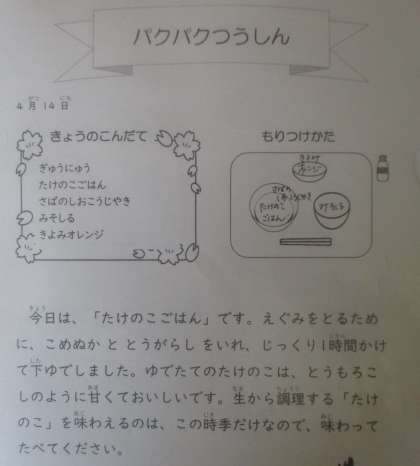 パクパクつうしん
4月14日
きょうのこんだて
ぎゅうにゅう
たけのこごはん
さばのしおこうじやき
みそしる
きよみオレンジ
もりつけかた
きよみ
オレンジ
さばの
たけのこ
ごはん
みそしる
今日は、「たけのこごはん」です。えぐみをとるため
に、こめぬか と とうがらし をいれ、じっくり1時間かけ
て下ゆでしました。ゆでたてのたけのこは、とうもろこ
しのように甘くておいしいです。生から調理する「たけ
のこ」を味わえるのは、この時季だけなので、味わって
たべてください。